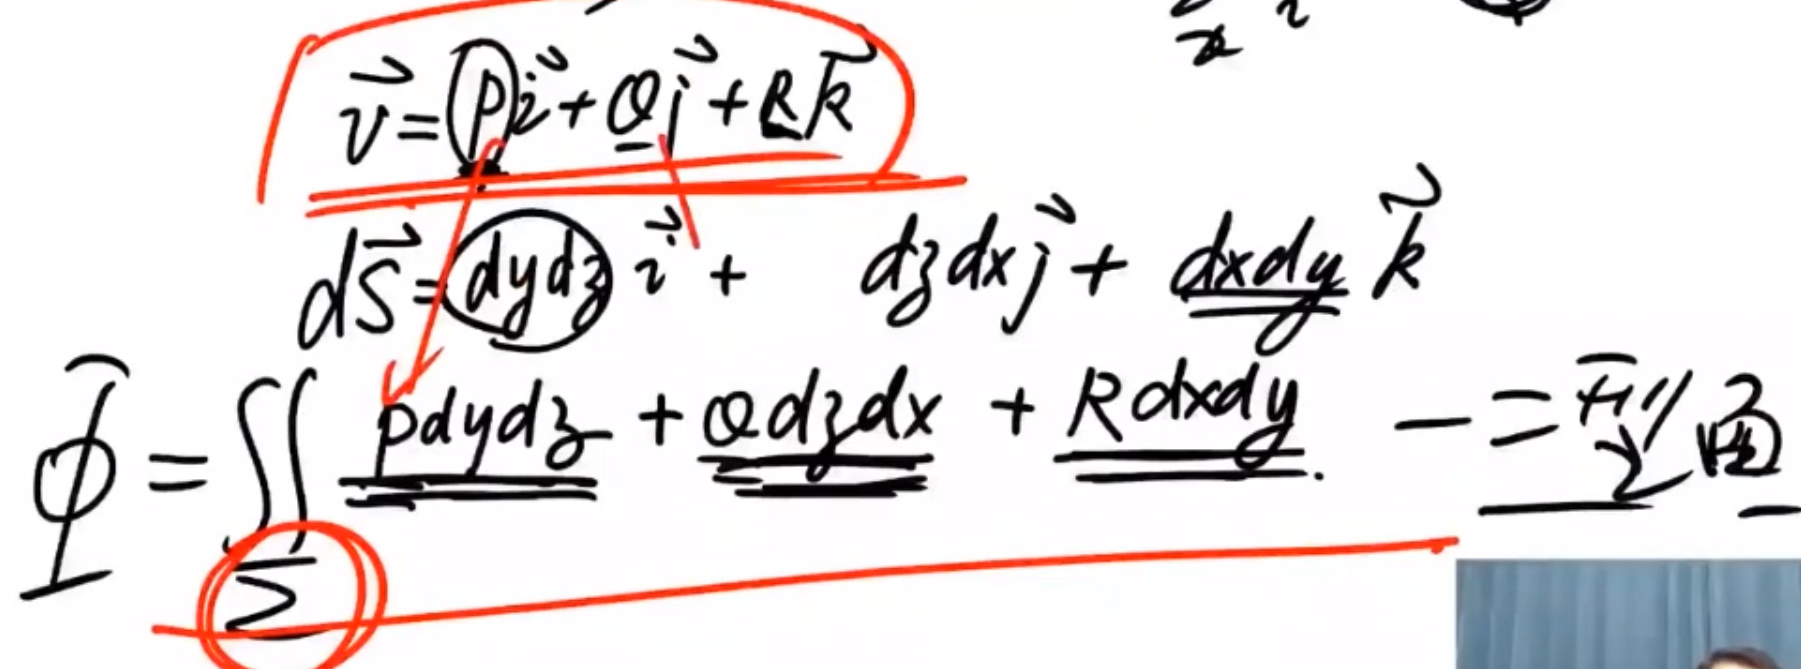 v⃗ = P i⃗ + Q j⃗ + R k⃗
dS⃗ = dydz i⃗ + dzdx j⃗ + dxdy k⃗
Φ = ∬_Σ Pdydz + Qdzdx + Rdxdy. — 二型面